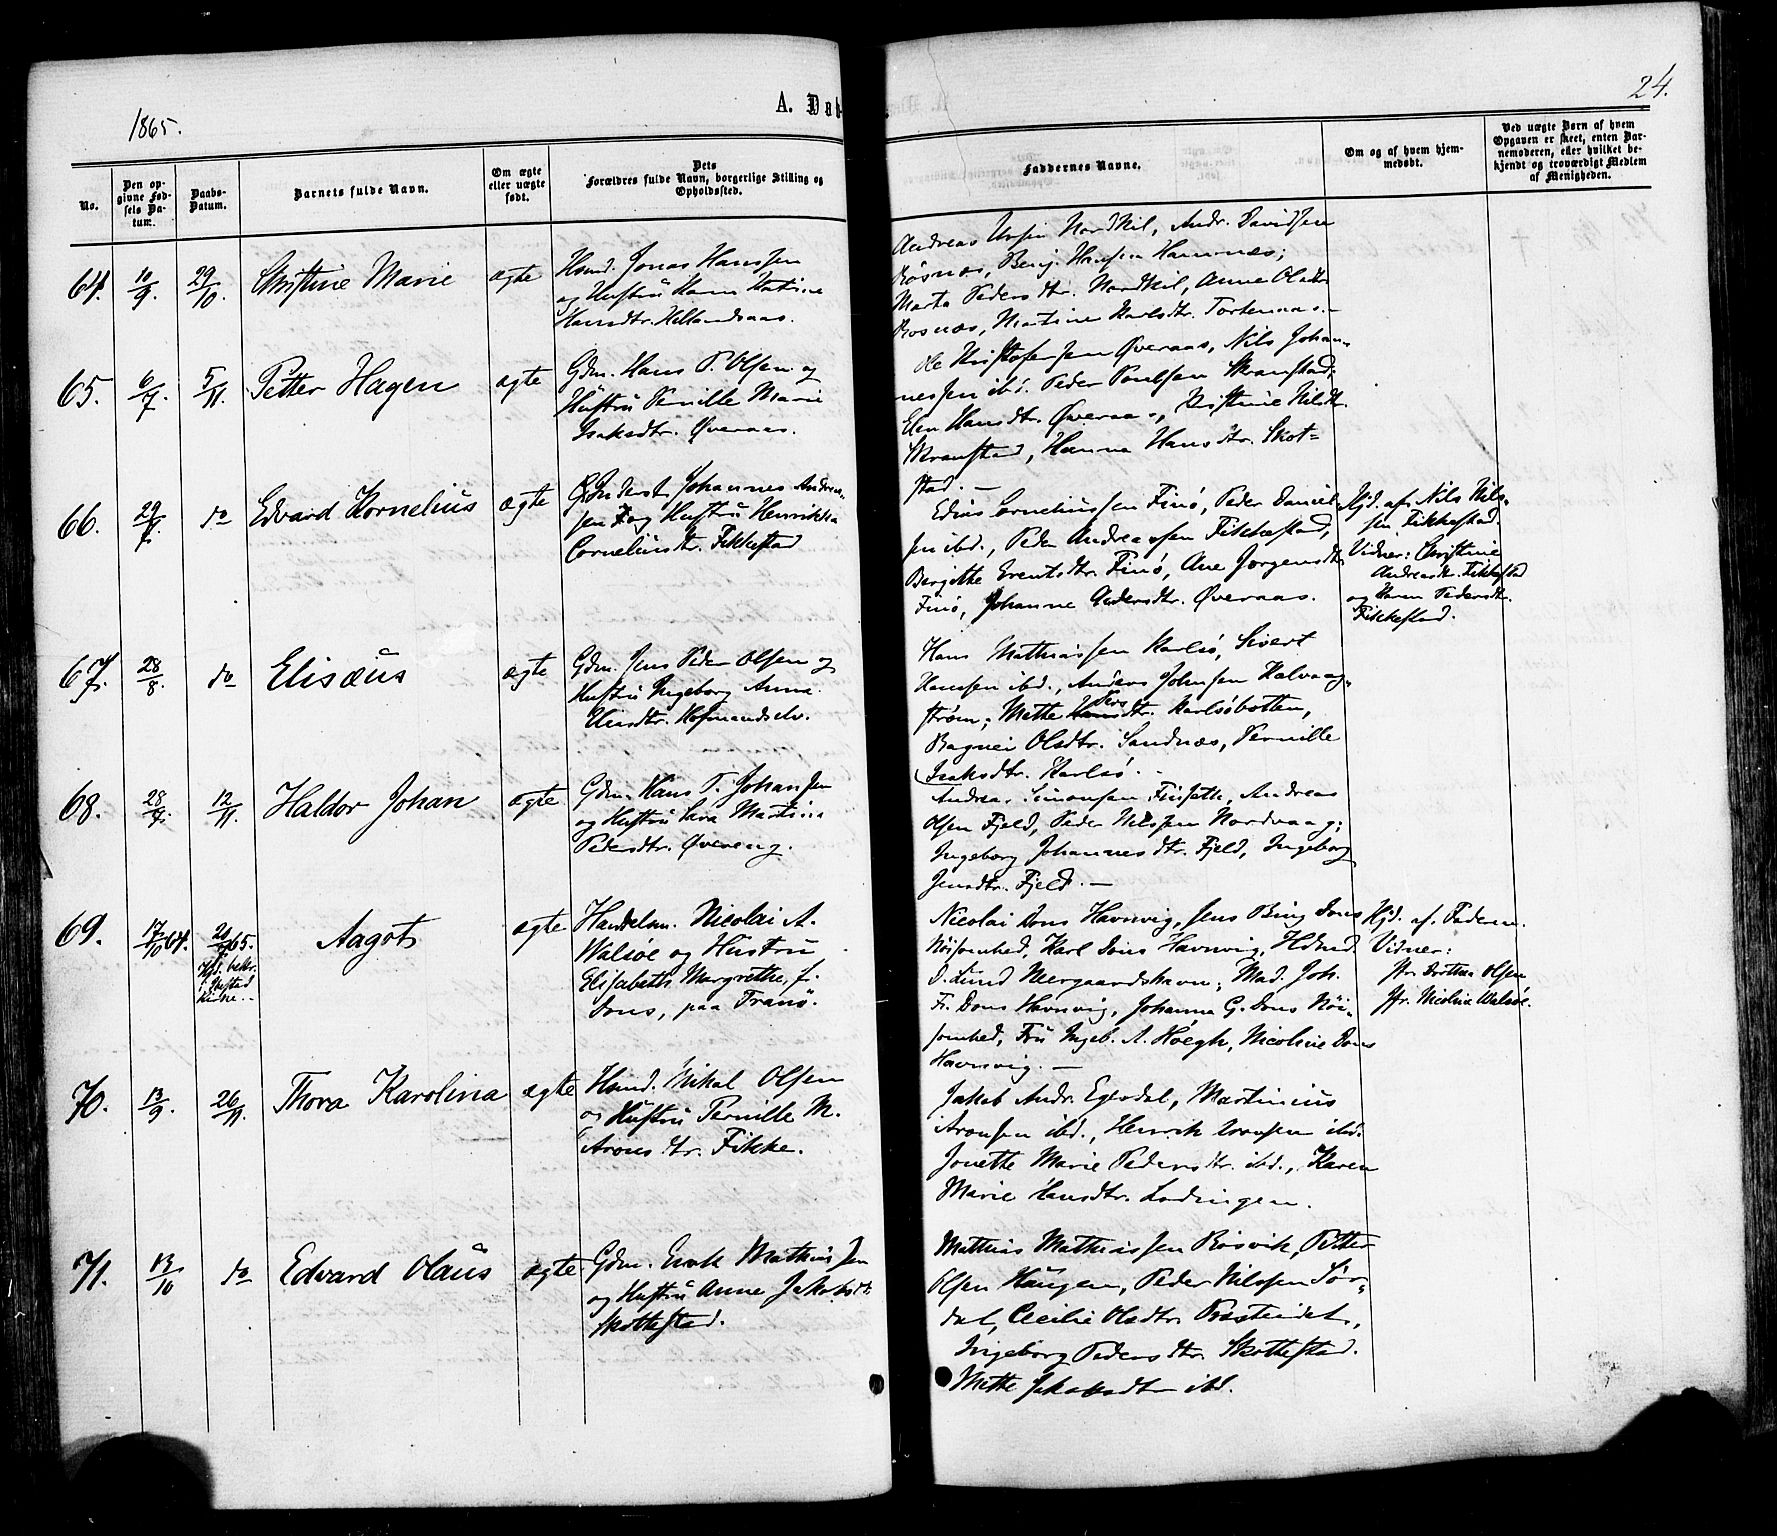 1865.
A. Døb
24.
No.
Den op-
givne Fød-
sels Da-
tum.
Daabs-
Datum.
Barnets fulde Navn.
Om ægte
eller uægte
født.
Dets
Forældres fulde Navn, borgerlige Stilling og
Opholdssted.
Faddernes Navne.
Om og af hvem hjem-
medøbt.
Ved uægte Børn af hvem
Opgaven er skeet, enten Bar-
nemoderen, eller hvilket be-
kjendt og troværdigt Medlem
af Menigheden.
64. 10/9. 29/10. Christine Marie ægte
Hsmd. Jonas Hanssen
og Hustru Hanna Katrine
Hansdtr. Hellandsaas.
Andreas Ursin Nordkil, Andr. Davidsen
Rösnæs, Benj. Hansen Hamnæs;
Marta Pedersdtr. Nordkil, Anne Olsdtr.
Rosnæs, Martine Karlsdtr. Tortenaas.-
65. 6/7. 5/11. Petter Hagen ægte
Gdm. Hans P. Olsen og
Hustru Pernille Marie
Isaksdtr. Øveraas.
Ole Kristofersen Øveraas, Nils Johan-
nessen ibd. Peder Poulsen Skranstad;
Elen Hansdtr. Øveraas, Kristine Nilsdtr.
Skranstad, Hanna Hansdtr. Skot-
stad. -
66. do Edvard Kornelius ægte
Johannes Andrea-
sen og Hustru Henrikka
Corneliusdtr. Fikkestad
Edius Corneliussen Finö, Peder Daniel-
sen ibd., Peder Andreassen Fikkestad,
Birgitte Erentsdtr. Finö, Ane Jörgensdtr.
Finö, Johanne Andersdtr. Øveraas.
Hjd. af Nils Nils-
sen Fikkestad.
Vidner: Christine
Andreasdtr. Fikkestad
og Karen Pedersdtr.
Fikkestad.
67. 28/8. do Elisæus ægte
Gdm. Jens Peder Olsen og
Hustru Ingeborg Anna
Hofmandselv.
Hans Mathiassen Karlsö, Sivert
Hanssen ibd., Anders Johnsen Kalvaag-
strøm; Mette dtr. Karlsöbotten,
Ragnei Olsdtr. Sandnæs, Pernille
Isaksdtr. Karlsö. -
68. 28/9. 12/11. Haldor Johan ægte
Gdm. Hans T. Johansen
og Hustru Sara Martina
Pedersdtr. Øvereng.
Andrea. Simonsen Finsæth, Andreas
Olsen Fjeld, Peder Nilssen Nordvaag;
Ingeborg Johannesdtr. Fjeld, Ingeborg
Jensdtr. Fjeld. -
69. 17/10 64. 65. Aagot ægte
Hjd. bekr.
i
Kirke. -
Handelsm. Nicolai A.
Walsöe og Hustru
Elisabeth Margrethe, f.
Dons, paa Tranö.
Nicolai Dons Havnvig, Jens Bing Dons
Röisomhed, Karl Dons Havnvig,
D. Lund Neergaardshavn; Mad. Joh.
Fr. Dons Havnvig, Johanna G. Dons Röi-
somhed, Fru Ingeb. A. Höegh, Nicoline Dons
Havnvig. -
Hjd. af Faderen.
Vidner:
Jfr. Dorthea Olsen
Jfr. Nicoline Walsöe.
70. 13/9. 26/11. Thora Karolina ægte
Hsmd. Mikal Olsen
og Hustru Pernille M.
Aronsdtr. Fikke.
Jakob Andr. Egedal, Martinius
Aronsen ibd., Henrik Aronsen ibd.
Jonette Marie Pedersdtr. ibd., Karen
Marie Hansdtr. Lødingen.
71. 13/10 do Edvard Olaus ægte
Gdm. Enok Mathiassen
og Hustru Anne Jakobsdtr.
Skottestad.
Mathias Mathiassen Rösvik, Petter
Olsen Haugen, Peder Nilssen Sör-
dal, Cecilie Olsdtr. Præsteidet,
Ingeborg Pedersdtr. Skottestad.
Mette Jakobsdtr. ibd.